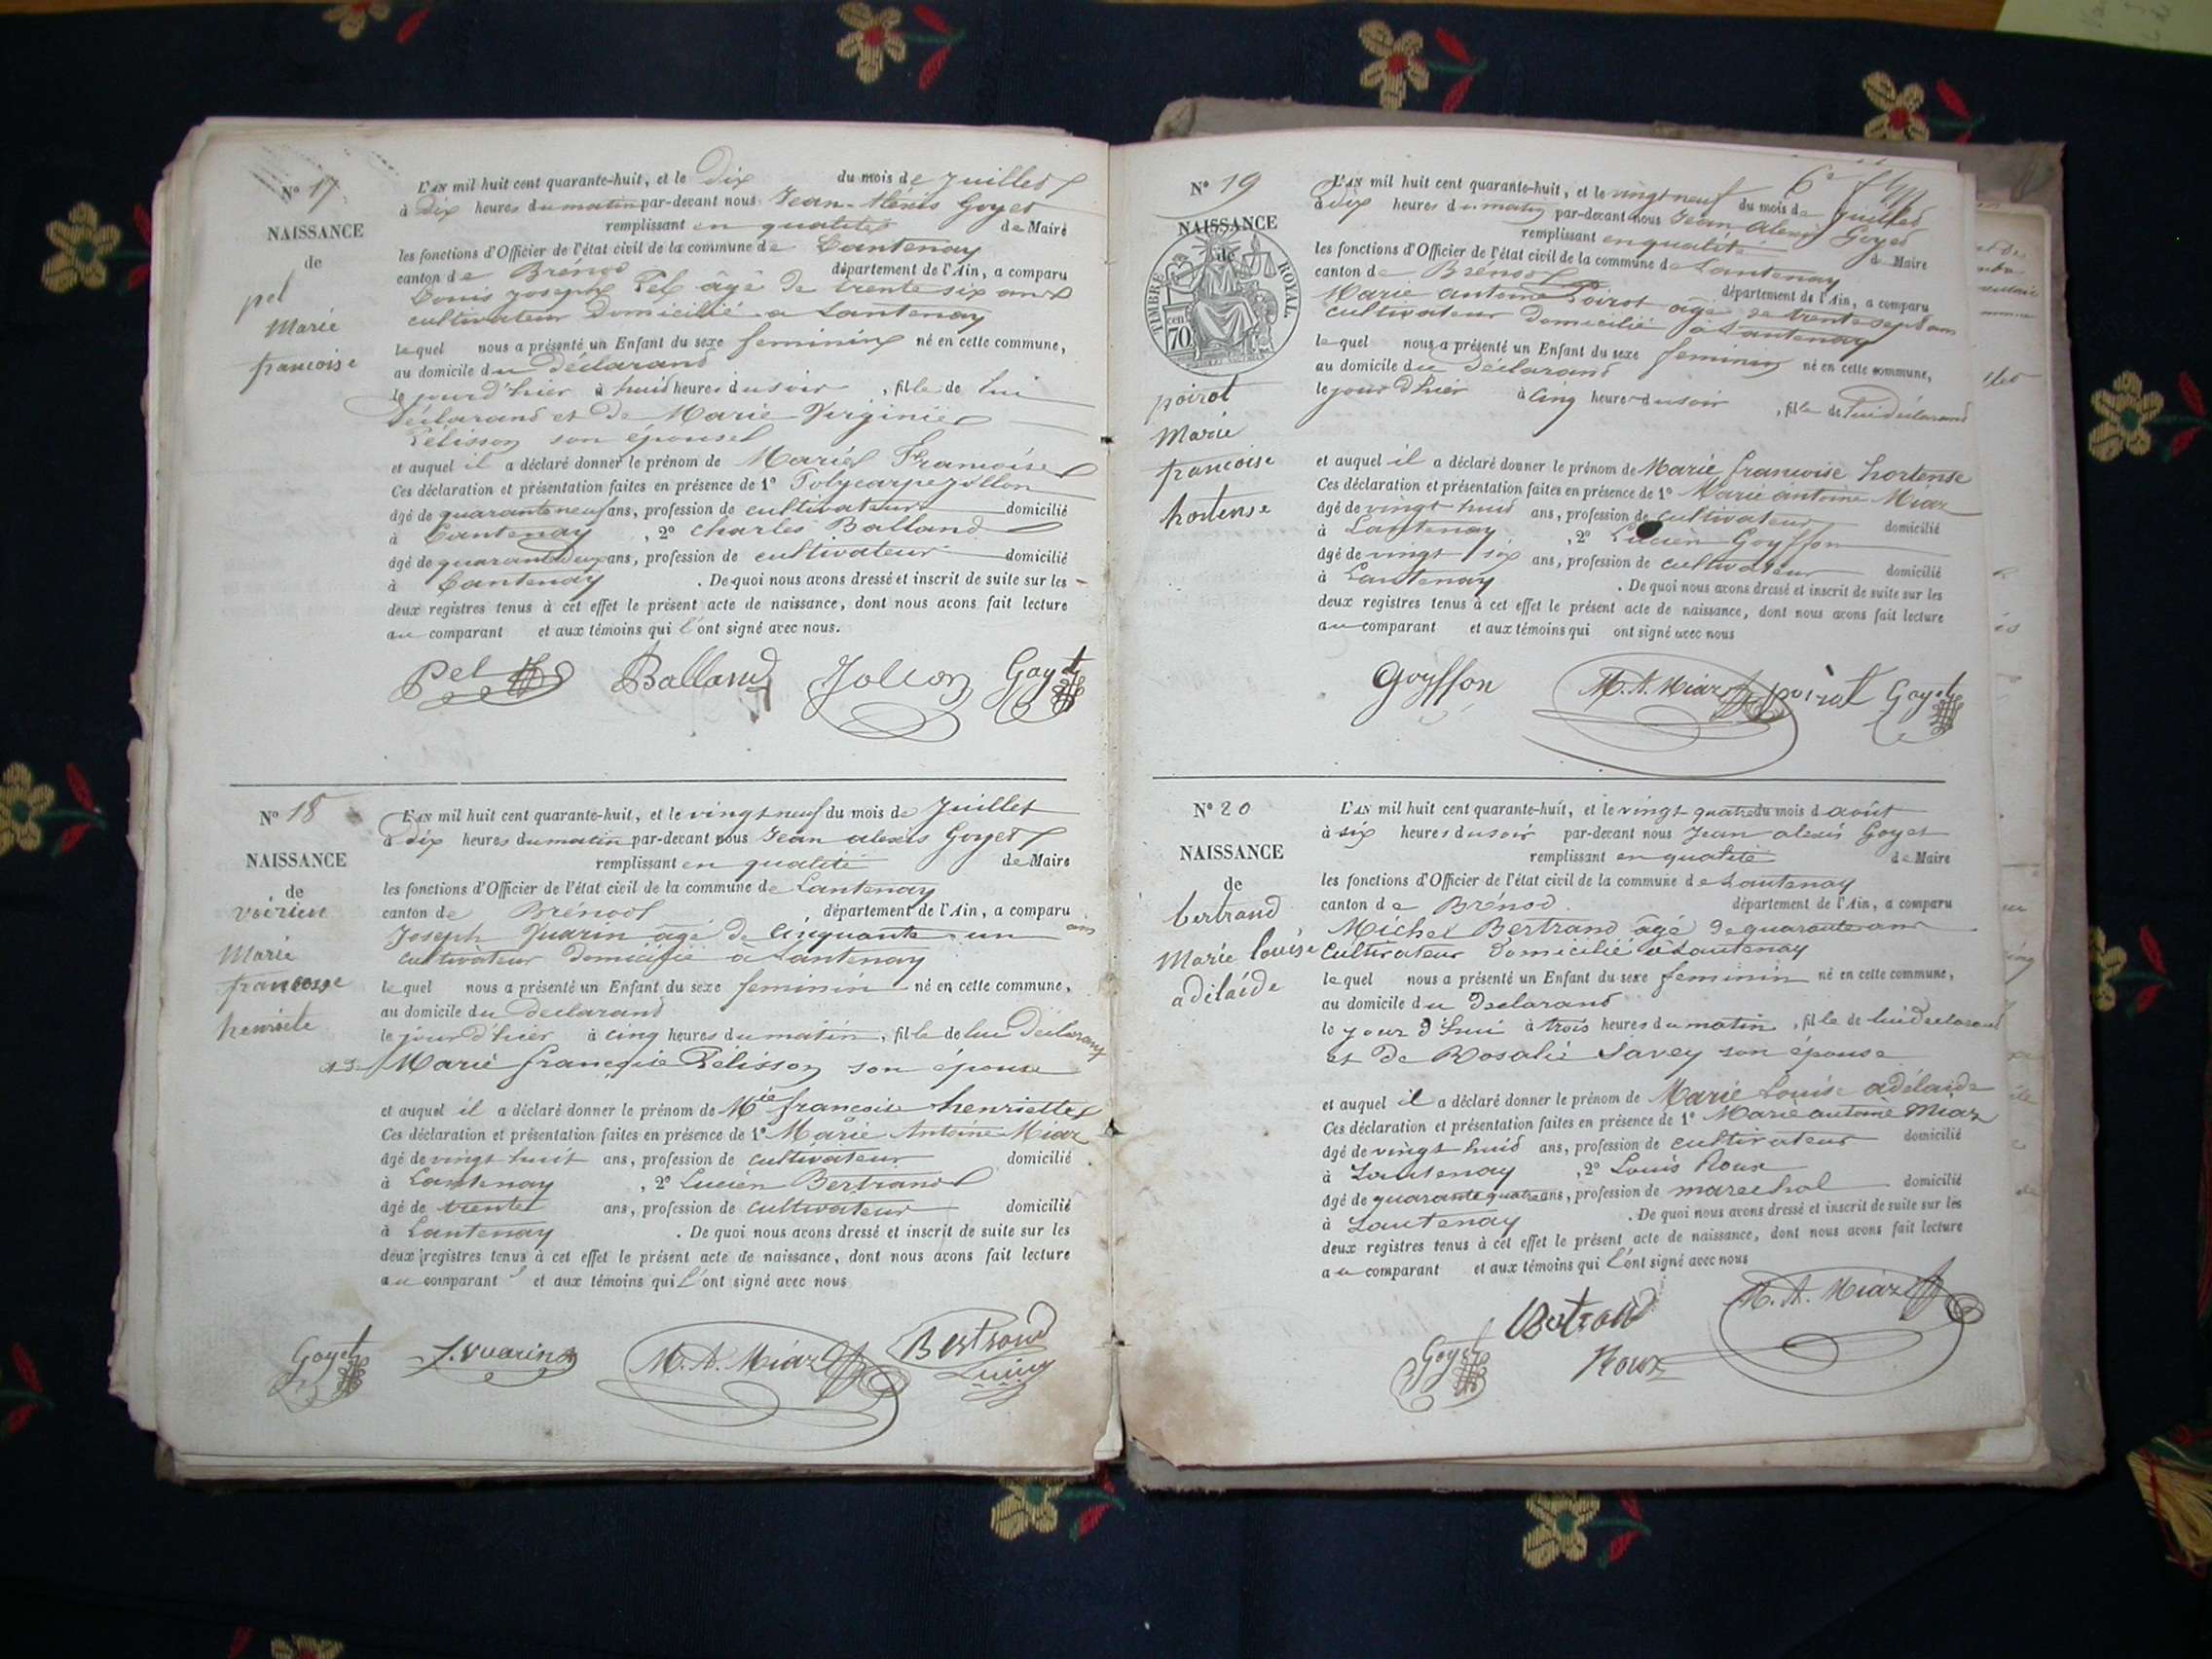 N° 17
NAISSANCE
de
pel
Marie
francoise
L'AN mil huit cent quarante-huit, et le Dix du mois de Juillet
à Dix heures du matin par-devant nous Jean-Alexis Goyet
remplissant en qualité de Maire
les fonctions d'Officier de l'état civil de la commune de Lantenay
canton de Brénod département de l'Ain, a comparu
Louis Joseph Pel âgé de trente six ans
cultivateur domicilié a Lantenay
lequel nous a présenté un Enfant du sexe feminin né en cette commune,
au domicile du Déclarand
le jour d'hier à huid heures du soir, fille de lui
Déclarand et de Marie Virginie
Pélisson son épouse
et auquel il a déclaré donner le prénom de Marie Francoise
Ces déclaration et présentation faites en présence de 1° Polycarpe Jollon
âgé de quarante neuf ans, profession de cultivateur domicilié
à Lantenay, 2° Charles Balland
âgé de quarante deux ans, profession de cultivateur domicilié
à Lantenay. De quoi nous avons dressé et inscrit de suite sur les
deux registres tenus à cet effet le présent acte de naissance, dont nous avons fait lecture
au comparant et aux témoins qui l'ont signé avec nous.
Pel Balland Jollon Goyet
N° 18
NAISSANCE
de
Marie
francoise
henriete
L'AN mil huit cent quarante-huit, et le vingt neuf du mois de Juillet
à dix heures du matin par-devant nous Jean alexis Goyet
remplissant en qualité de Maire
les fonctions d'Officier de l'état civil de la commune de Lantenay
canton de Brénod département de l'Ain, a comparu
Joseph Vuarin âgé de cinquante un ans
cultivateur domicilié à Lantenay
lequel nous a présenté un Enfant du sexe feminin né en cette commune,
au domicile du declarand
le jour d'hier à cinq heures du matin, fille de lui Déclarant
et de Marie françoise Pélisson son épouse
et auquel il a déclaré donner le prénom de Mie francoise henriette
Ces déclaration et présentation faites en présence de 1° Marie Antoine Miaz
âgé de vingt huit ans, profession de cultivateur domicilié
à Lantenay, 2° Lucien Bertrand
âgé de trente ans, profession de cultivateur domicilié
à Lantenay. De quoi nous avons dressé et inscrit de suite sur les
deux registres tenus à cet effet le présent acte de naissance, dont nous avons fait lecture
au comparant et aux témoins qui l'ont signé avec nous
Goyet J. Vuarin M. A. Miaz Bertrand
N° 19
NAISSANCE
de
TIMBRE ROYAL
cen 70
poirot
Marie
francoise
hortense
L'AN mil huit cent quarante-huit, et le vingt neuf du mois de juillet
à dix heures du matin par-devant nous Jean Alexis Goyet
remplissant en qualité de Maire
les fonctions d'Officier de l'état civil de la commune de Lantenay
canton de Brénod département de l'Ain, a comparu
Marie antoine Poirot âgé de trente sept ans
cultivateur Domicilié à Lantenay
lequel nous a présenté un Enfant du sexe feminin né en cette commune,
au domicile du Déclarand
le jour d'hier à cinq heures du soir, fille de lui déclarand
et auquel il a déclaré donner le prénom de Marie francoise hortense
Ces déclaration et présentation faites en présence de 1° Marie antoine Miaz
âgé de vingt huid ans, profession de cultivateur domicilié
à Lantenay, 2° Lucien Goyffon
âgé de vingt six ans, profession de cultivateur domicilié
à Lantenay. De quoi nous avons dressé et inscrit de suite sur les
deux registres tenus à cet effet le présent acte de naissance, dont nous avons fait lecture
au comparant et aux témoins qui ont signé avec nous
Goyffon M. A. Miaz poirot Goyet
N° 20
NAISSANCE
de
bertrand
Marie louise
adélaide
L'AN mil huit cent quarante-huit, et le vingt quatre du mois d août
à six heures du soir par-devant nous Jean alexis Goyet
remplissant en qualité de Maire
les fonctions d'Officier de l'état civil de la commune de Lantenay
canton de Brénod département de l'Ain, a comparu
Michel Bertrand âgé de quarante ans
cultivateur Domicilié à Lantenay
lequel nous a présenté un Enfant du sexe feminin né en cette commune,
au domicile du Declarand
le jour d'hui à trois heures du matin, fille de lui declarand
et de Rosalie Savey son épouse
et auquel il a déclaré donner le prénom de Marie Louise adélaide
Ces déclaration et présentation faites en présence de 1° Marie antoine Miaz
âgé de vingt huid ans, profession de cultivateur domicilié
à Lantenay, 2° Louis Roux
âgé de quarante quatre ans, profession de marechal domicilié
à Lantenay. De quoi nous avons dressé et inscrit de suite sur les
deux registres tenus à cet effet le présent acte de naissance, dont nous avons fait lecture
au comparant et aux témoins qui l'ont signé avec nous
Bertrand M. A. Miaz
Goyet Roux